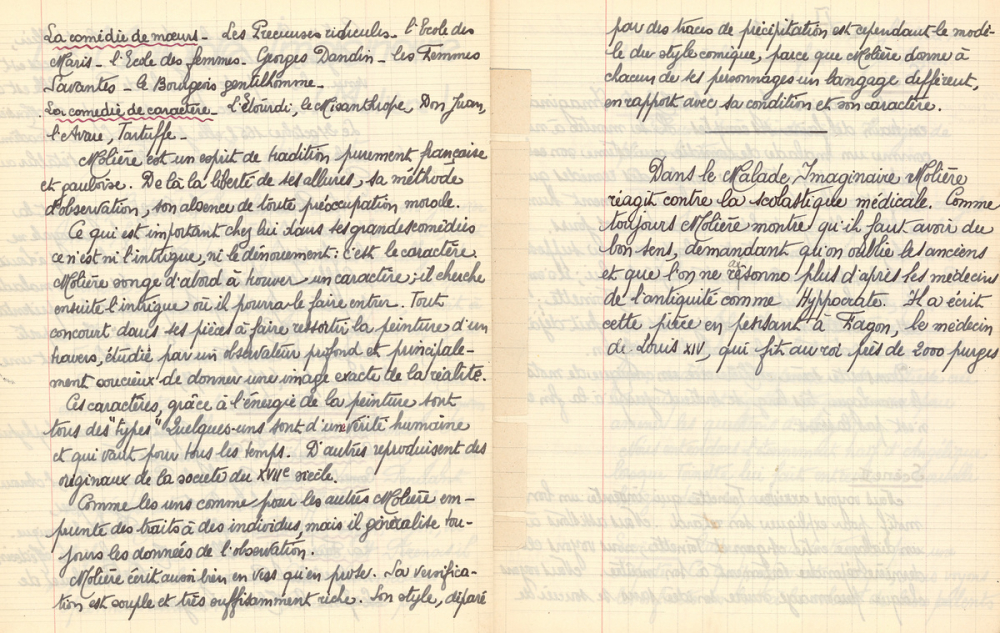 La comédie de mœurs - Les Précieuses ridicules - l'Ecole des
Maris - l'Ecole des femmes - Georges Dandin - Les Femmes
Savantes - le Bourgeois gentilhomme -
La comédie de caractère - l'Etourdi, le Misanthrope, Don Juan,
l'Avare, Tartuffe -
Molière est un esprit de tradition purement française
et gauloise. De là la liberté de ses allures, sa méthode
d'observation, son absence de toute préoccupation morale.
Ce qui est important chez lui dans ses grandes comédies
ce n'est ni l'intrigue, ni le dénouement : c'est le caractère.
Molière songe d'abord à trouver un caractère ; il cherche
ensuite l'intrigue où il pourra le faire entrer. Tout
concourt dans ses pièces à faire ressortir la peinture d'un
travers, étudié par un observateur profond et principale-
ment soucieux de donner une image exacte de la réalité.
Ces caractères, grâce à l'énergie de la peinture sont
tous des "types" Quelques-uns sont d'une vérité humaine
et qui vaut pour tous les temps. D'autres reproduisent des
originaux de la société du XVIIe siècle.
Comme les uns comme pour les autres Molière em-
prunte des traits à des individus, mais il généralise tou-
jours les données de l'observation.
Molière écrit aussi bien en vers qu'en prose. Sa versifica-
tion est souple et très suffisamment riche. Son style, déparé
par des traces de précipitation est cependant le modè-
le du style comique, parce que Molière donne à
chacun de ses personnages un langage différent,
en rapport avec sa condition et son caractère.
Dans le Malade Imaginaire Molière
réagit contre la scolastique médicale. Comme
toujours Molière montre qu'il faut avoir du
bon sens, demandant qu'on oublie les anciens
et que l'on ne raisonne plus d'après les médecins
de l'antiquité comme Hyppocrate. Il a écrit
cette pièce en pensant à Fagon, le médecin
de Louis XIV, qui fit au roi près de 2000 purges